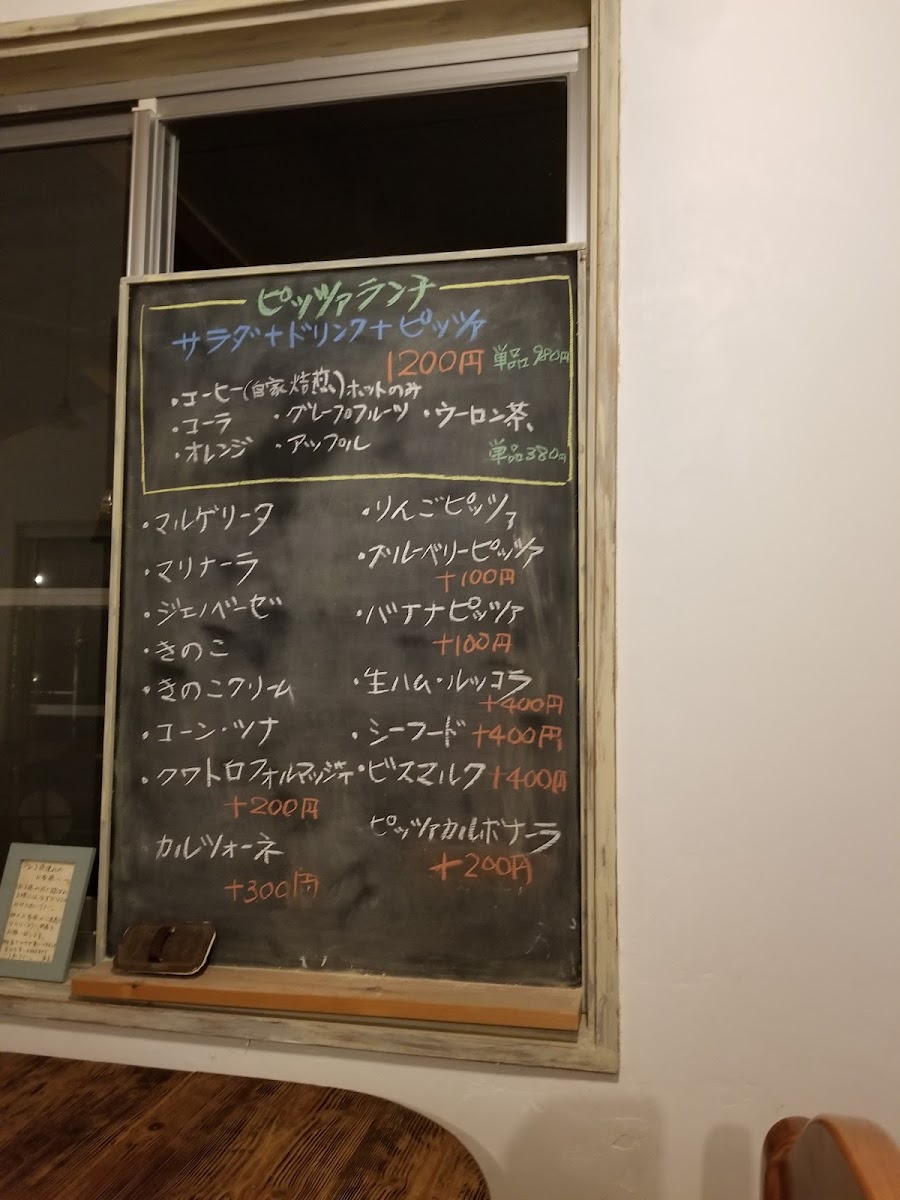 ピッツァランチ
サラダ+ドリンク+ピッツァ
1200円 単品980円
・コーヒー(自家焙煎)ホットのみ
・コーラ ・グレープフルーツ ・ウーロン茶
・オレンジ ・アップル
単品380円
・マルゲリータ
・マリナーラ
・ジェノベーゼ
・きのこ
・きのこクリーム
・コーン・ツナ
・クワトロフォルマッジオ
+200円
カルツォーネ
+300円
・りんごピッツァ
・ブルーベリーピッツァ
+100円
・バナナピッツァ
+100円
・生ハム・ルッコラ
+400円
・シーフード +400円
・ビスマルク +400円
ピッツァカルボナーラ
+200円